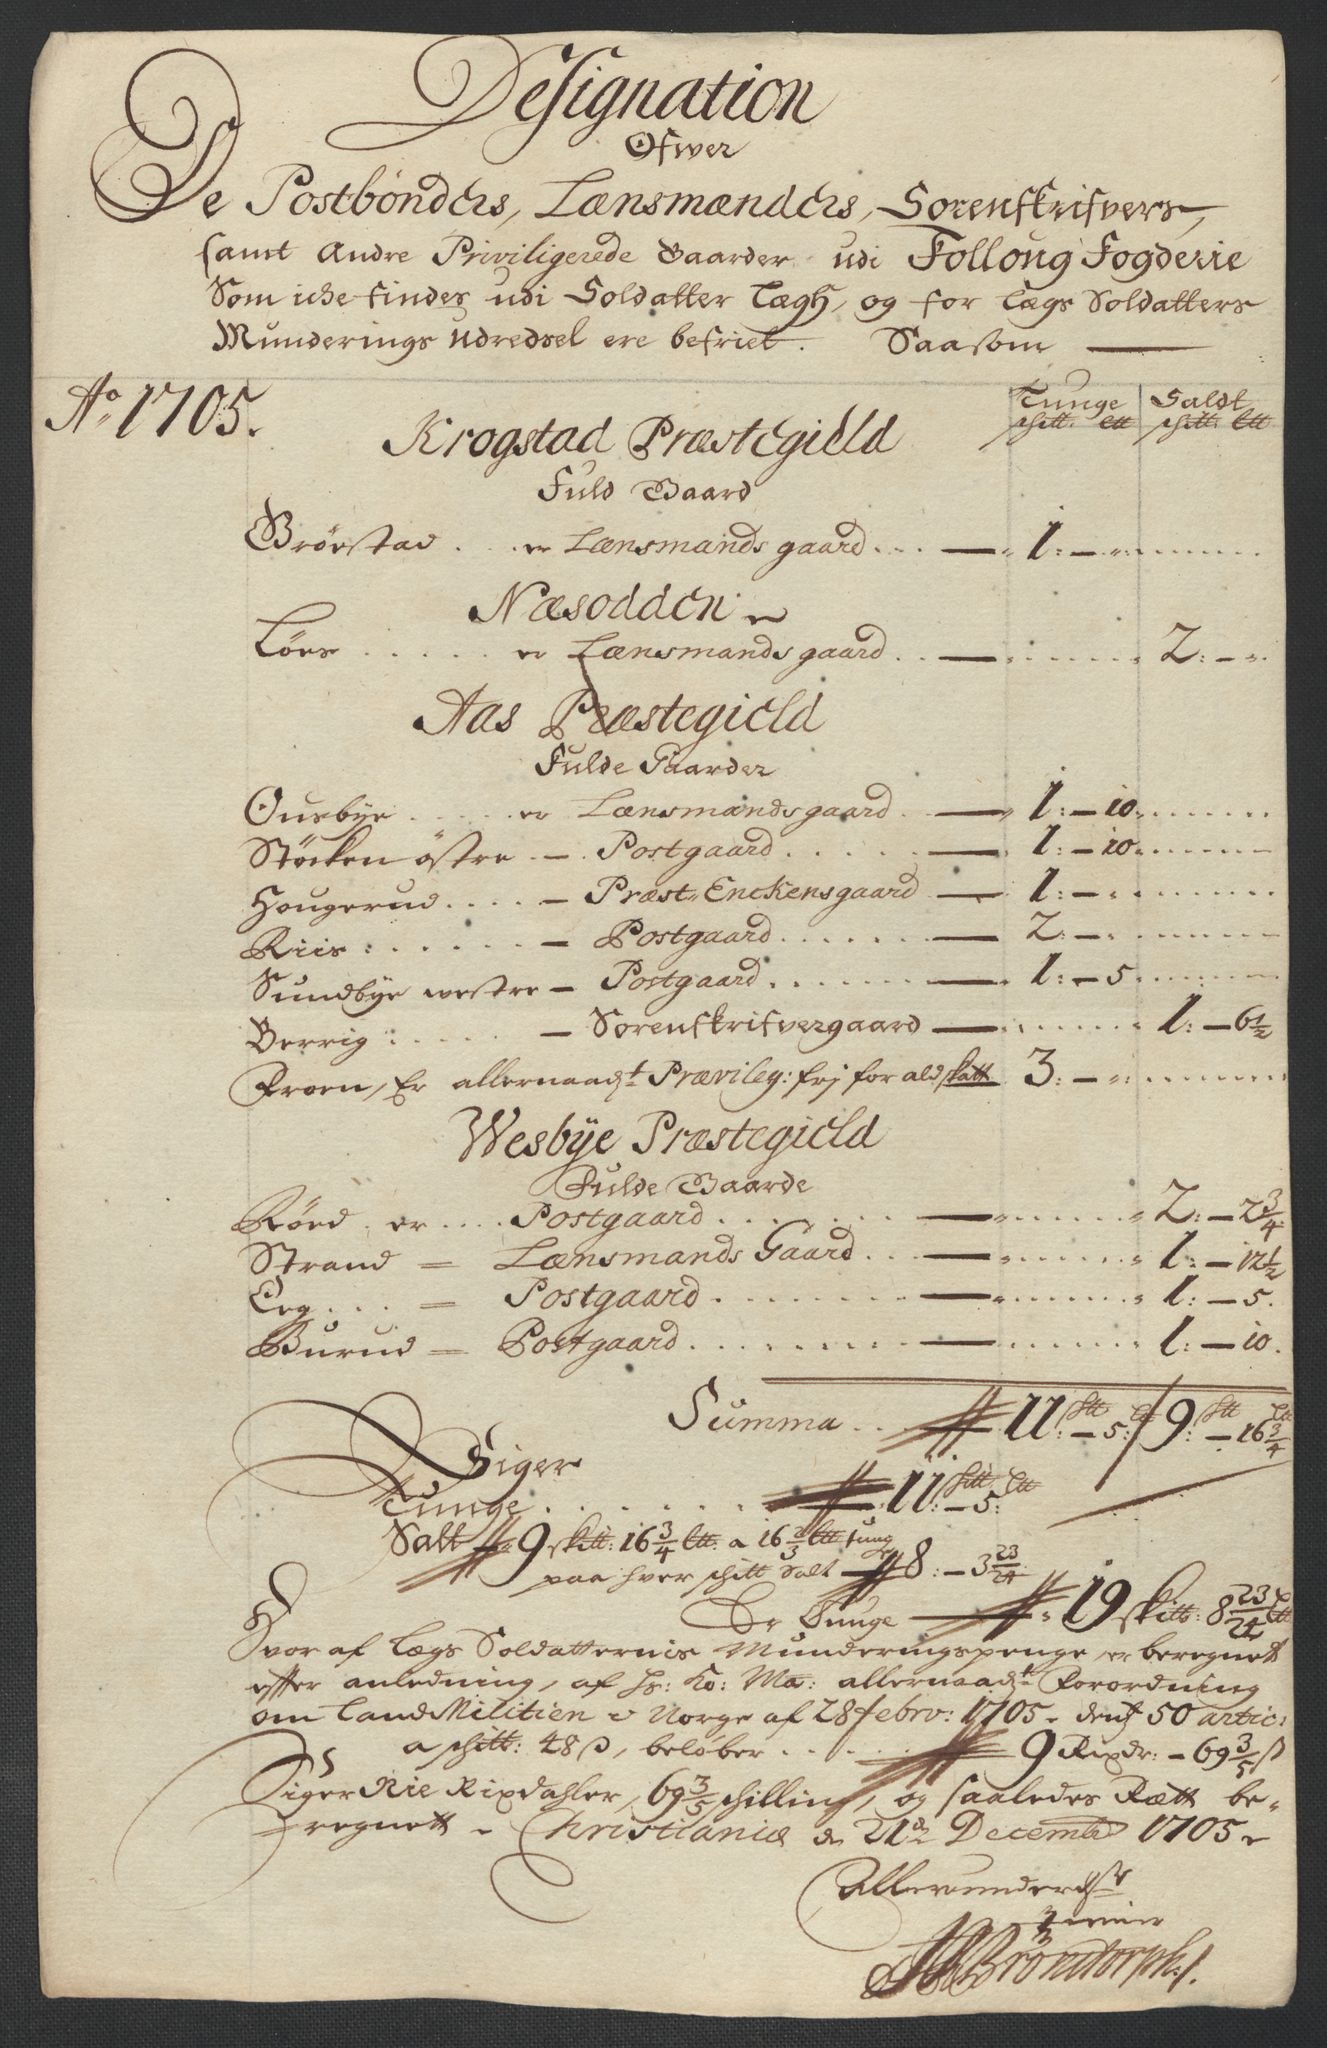 Designation
Ofwer
De Postbønders, Lænsmænders, Sorenskrifvers,
samt Andre Priviligerede Gaarder udi Follong Fogderie
Som iche findes udi Soldatter Lægh, og for Lægs Soldatters
Munderings Udredsel ere befriet. Saasom
Ao 1705.
Tunge Saldt
schitt: ltt schitt: ltt
Krogstad Præstegield
Fuld Gaard
Brøestad . . . er Lænsmands gaard . . . — 1: —
Næsodden
Løes . . . . . er Lænsmands gaard . . — 2: —
Aas Præstegield
Fulde Gaarder
Ousbye . . . . . er Lænsmandsgaard . — 1: — 10
Støcken østre — Postgaard . . . . . — 1: — 10
Hougerud . . . . — Præst Enckensgaard — 1: —
Riis : . . . . . — Postgaard . . . . . — 2: —
Sundbye westre — Postgaard . . . . . — 1: — 5
Berrig : . . . . — Sorenskrifvergaard — 1: — 6½
Froen, Er allernaadt Prævileg: frj for ald skatt 3: —
Wesbye Præstegield
Fulde Gaarde
Røed . er . . . . Postgaard . . . . . — 2: — 2¾
Strand = Lænsmands Gaard . . — 1: — 12½
Eeg . . . = Postgaard . . . . . — 1: — 5.
Burud = Postgaard . . . . . — 1: — 10.
Summa . . 11: schtt — 5: ltt / 9: schtt — 16¾ ltt
Siger
Tunge . . . . . . . 11: schtt — 5: ltt
Salt 9 skitt: 16¾ ltt: a 16⅔ ltt tung
paa hver schitt Salt — 8: — 3 23/24
Er Tunge — 19 skitt: 8 23/24 ltt
Hvor af Lægs Soldatternis Munderingspenge er beregnet
efter anledning, af Hs: Ko: Ma: allernaadt Forordning
om Land Militien i Norge af 28 febrv: 1705. dend 50 artic:
a schitt: 48 ß, beløber . . . . 9 Rixdr: — 69⅗ ß
Siger Nie Rixdahler, 69⅗ schilling, og saaledes Rætt be-
regnett. Christiania d 21de Decembr 1705.
Allerunderdst
tiener
Brøndorph